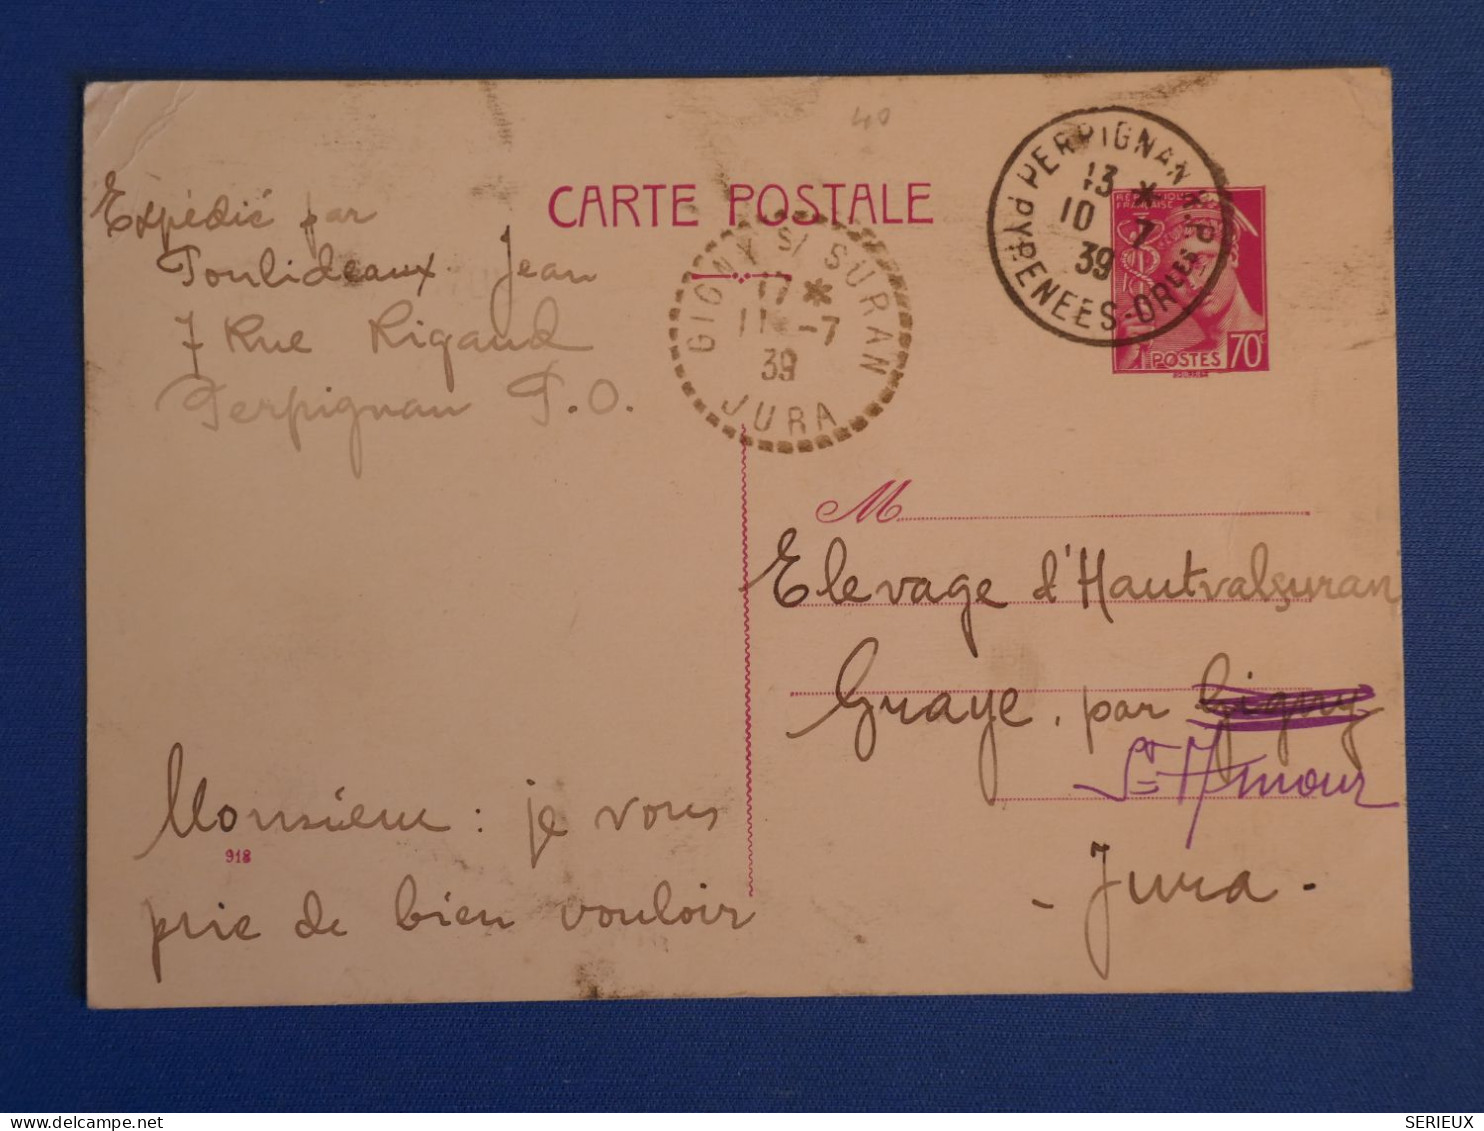 40
CARTE POSTALE
PERPIGNAN R.P.
13 *
10 7
39
PYRENEES-ORLES
REPUBLIQUE
FRANÇAISE
POSTES 70c
Expédié par
Toulideaux Jean
7 Rue Rigaud
Perpignan P.O.
GIGNY S/ SURAN
17 *
11 -7
39
JURA
M
Elevage d'Hautvalsuran
Graye. par Gigny
St Amour
- Jura -
Monsieur : je vous
918
prie de bien vouloir
SERIEUX